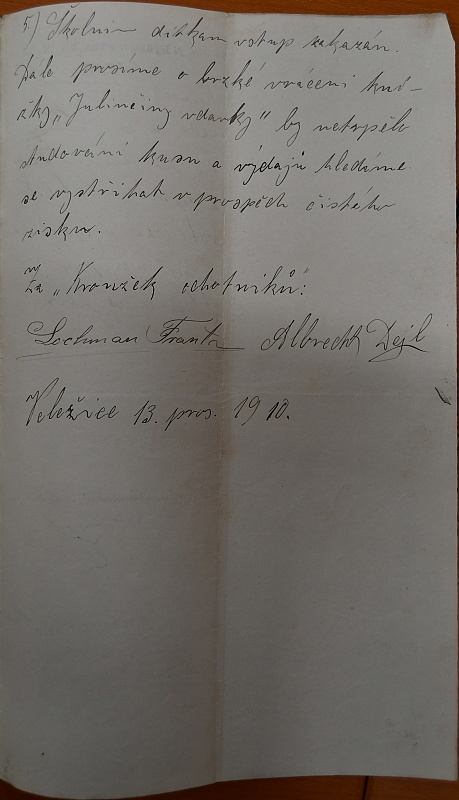 5.) Školním dítkam vstup zakazán.
Dále prosíme o brzké vráceni kní-
žky „Julinčiny vdavky" by netrpělo
studování kusu a výdajů hledíme
se vystříhat v prospěch čistého
zisku.
Za „Kroužek ochotníků":
Lochman Frant. Albrecht Dejl
Veležice 13. pros. 1910.